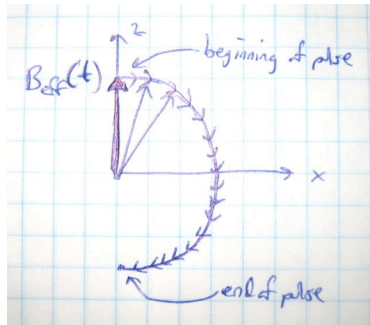 z
beginning of pulse
B_eff(t)
x
end of pulse